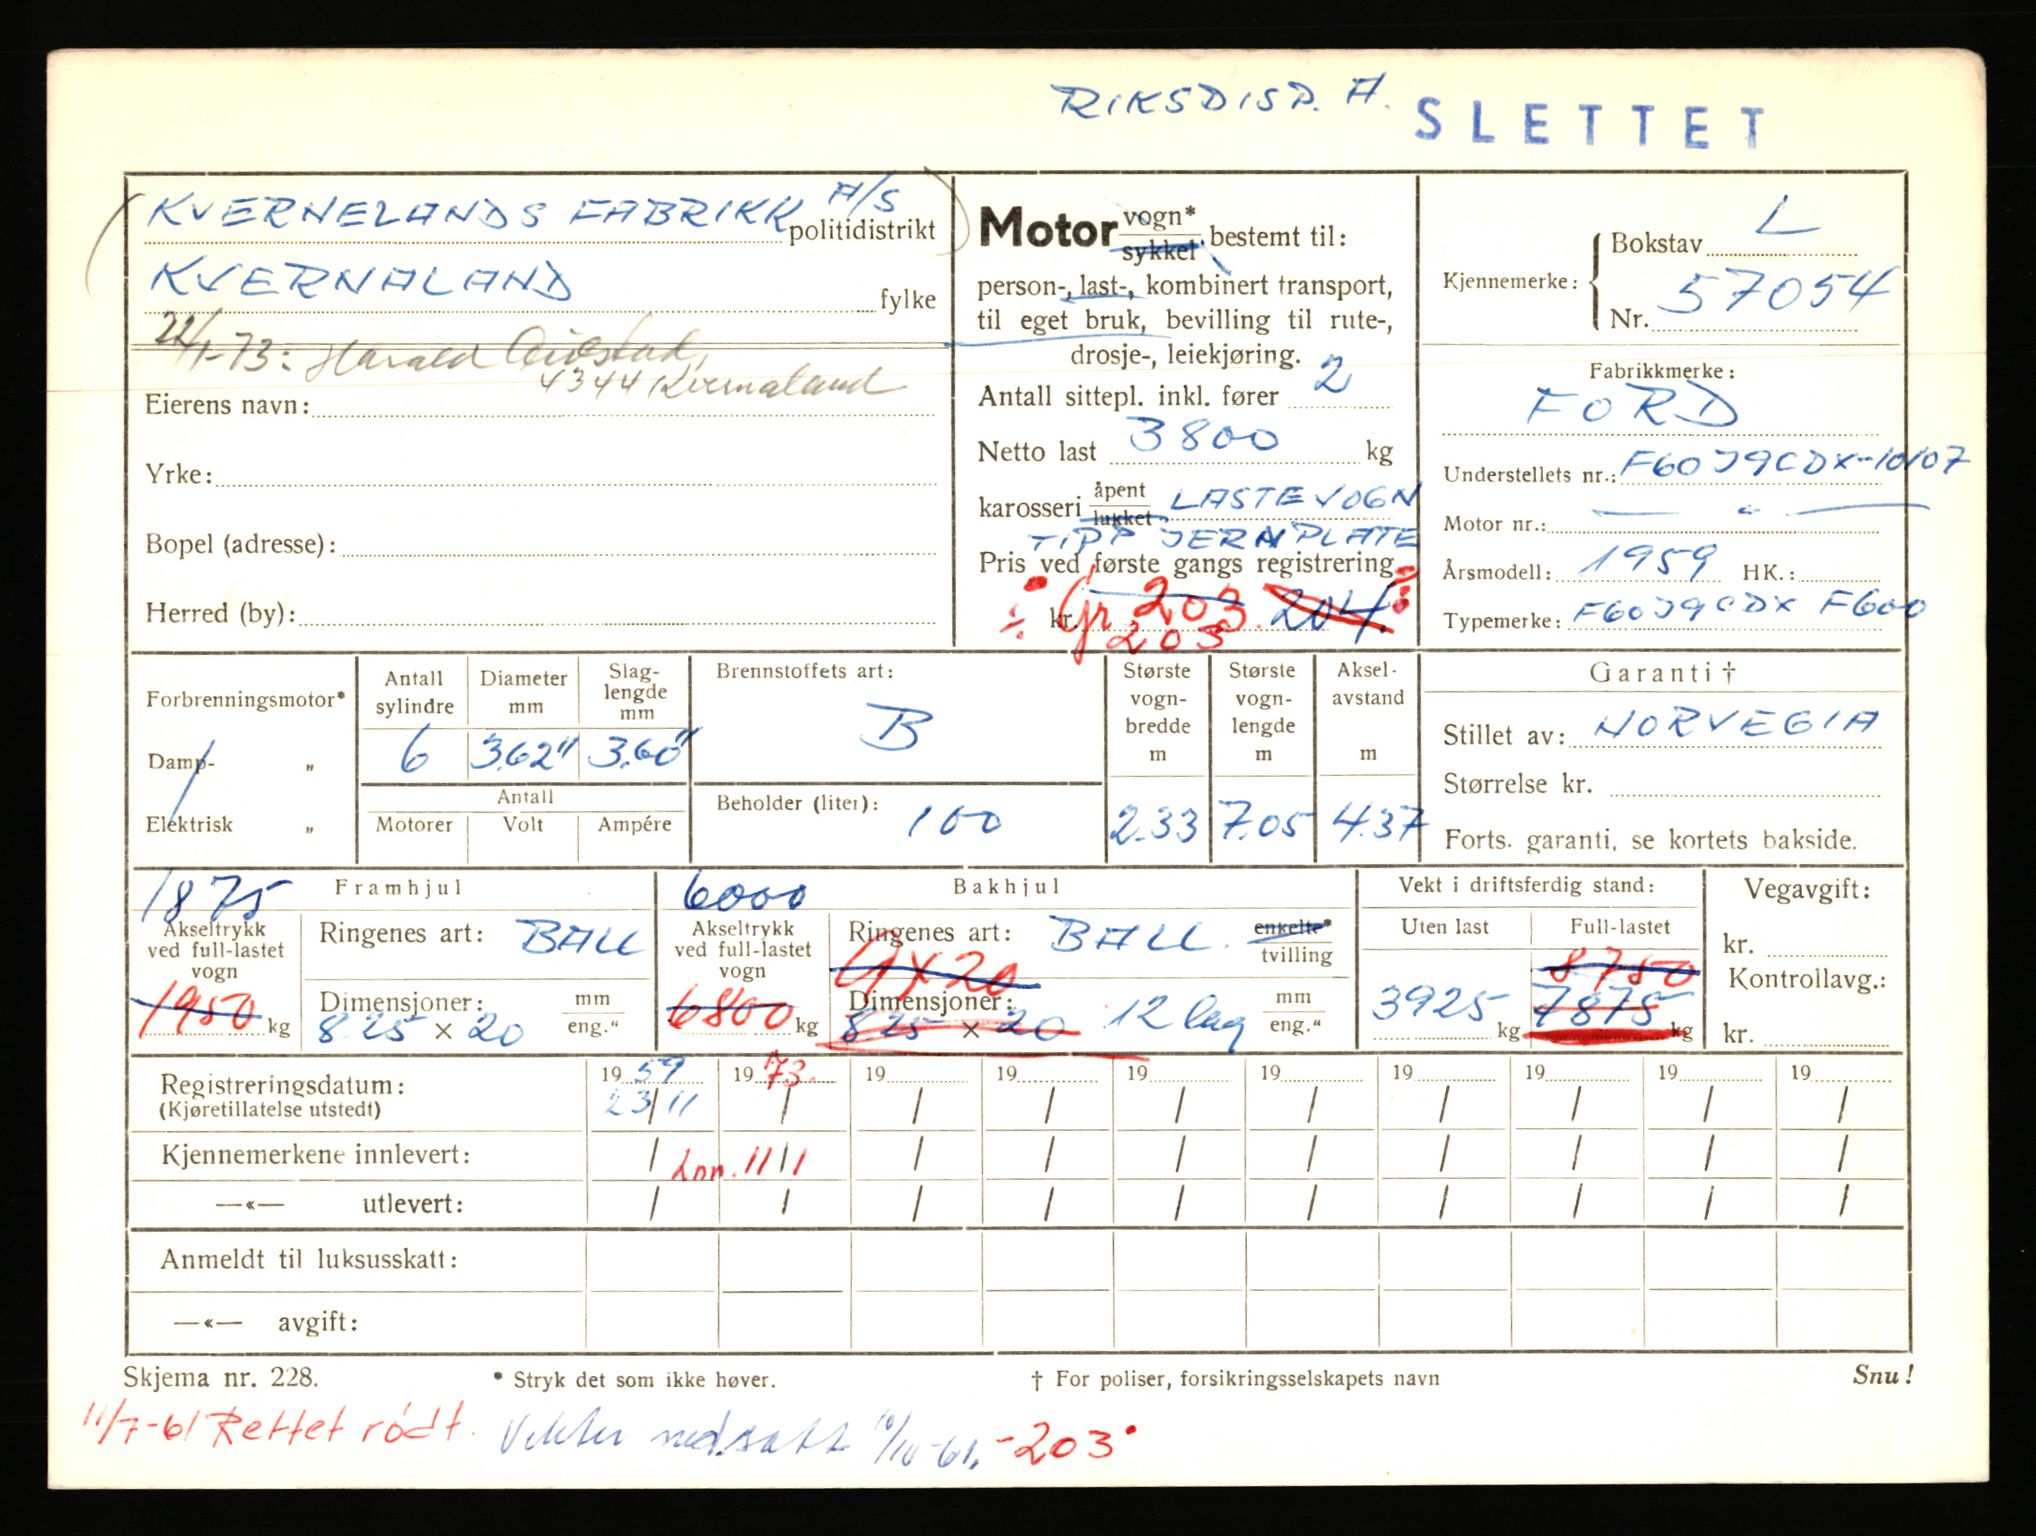 RIKSDISP. A. SLETTET
KVERNELANDS FABRIKK A/S politidistrikt
KVERNALAND fylke
22/1-73: Harald
4344 Kvernaland
Eierens navn:
Yrke:
Bopel (adresse):
Herred (by):
Motor vogn* sykkel* bestemt til:
person-, last-, kombinert transport,
til eget bruk, bevilling til rute-,
drosje-, leiekjøring.
Antall sittepl. inkl. fører 2
Netto last 3800 kg
karosseri åpent lukket LASTEVOGN
TIPP JERNPLATE
Pris ved første gangs registrering
kr. Gr 203. 204.
203
Kjennemerke: Bokstav L
Nr. 57054
Fabrikkmerke:
FORD
Understellets nr.: F60J9CDX-10107
Motor nr.: — " —
Årsmodell: 1959 HK.:
Typemerke: F60J9CDX F600
Forbrenningsmotor*
Damp- „
Elektrisk „
Antall sylindre 6
Diameter mm 3.62"
Slag-lengde mm 3.60"
Antall
Motorer Volt Ampére
Brennstoffets art:
B
Beholder (liter): 100
Største vogn-bredde m 2.33
Største vogn-lengde m 7.05
Aksel-avstand m 4.37
Garanti †
Stillet av: NORVEGIA
Størrelse kr.
Forts. garanti, se kortets bakside.
1875 Framhjul
Akseltrykk ved full-lastet vogn
1950 kg
Ringenes art: BALL
Dimensjoner: mm eng."
8.25 × 20
6000 Bakhjul
Akseltrykk ved full-lastet vogn
6800 kg
Ringenes art: BALL. enkelte* tvilling
9 x 20
Dimensjoner: 12 lag mm eng."
825 × 20
Vekt i driftsferdig stand:
Uten last Full-lastet
8750
3925 kg 7875 kg
Vegavgift:
kr.
Kontrollavg.:
kr.
Registreringsdatum: 19 59 19 73. 19 19 19 19 19 19 19 19
(Kjøretillatelse utstedt) 23/11 / / / / / / / / /
Kjennemerkene innlevert: / 11/1 / / / / / / / /
—«— utlevert: / / / / / / / / / /
Anmeldt til luksusskatt:
—«— avgift:
Skjema nr. 228. * Stryk det som ikke høver. † For poliser, forsikringsselskapets navn Snu!
11/7-61 Rettet rødt. Vekter nedsatt 10/10-61. -203